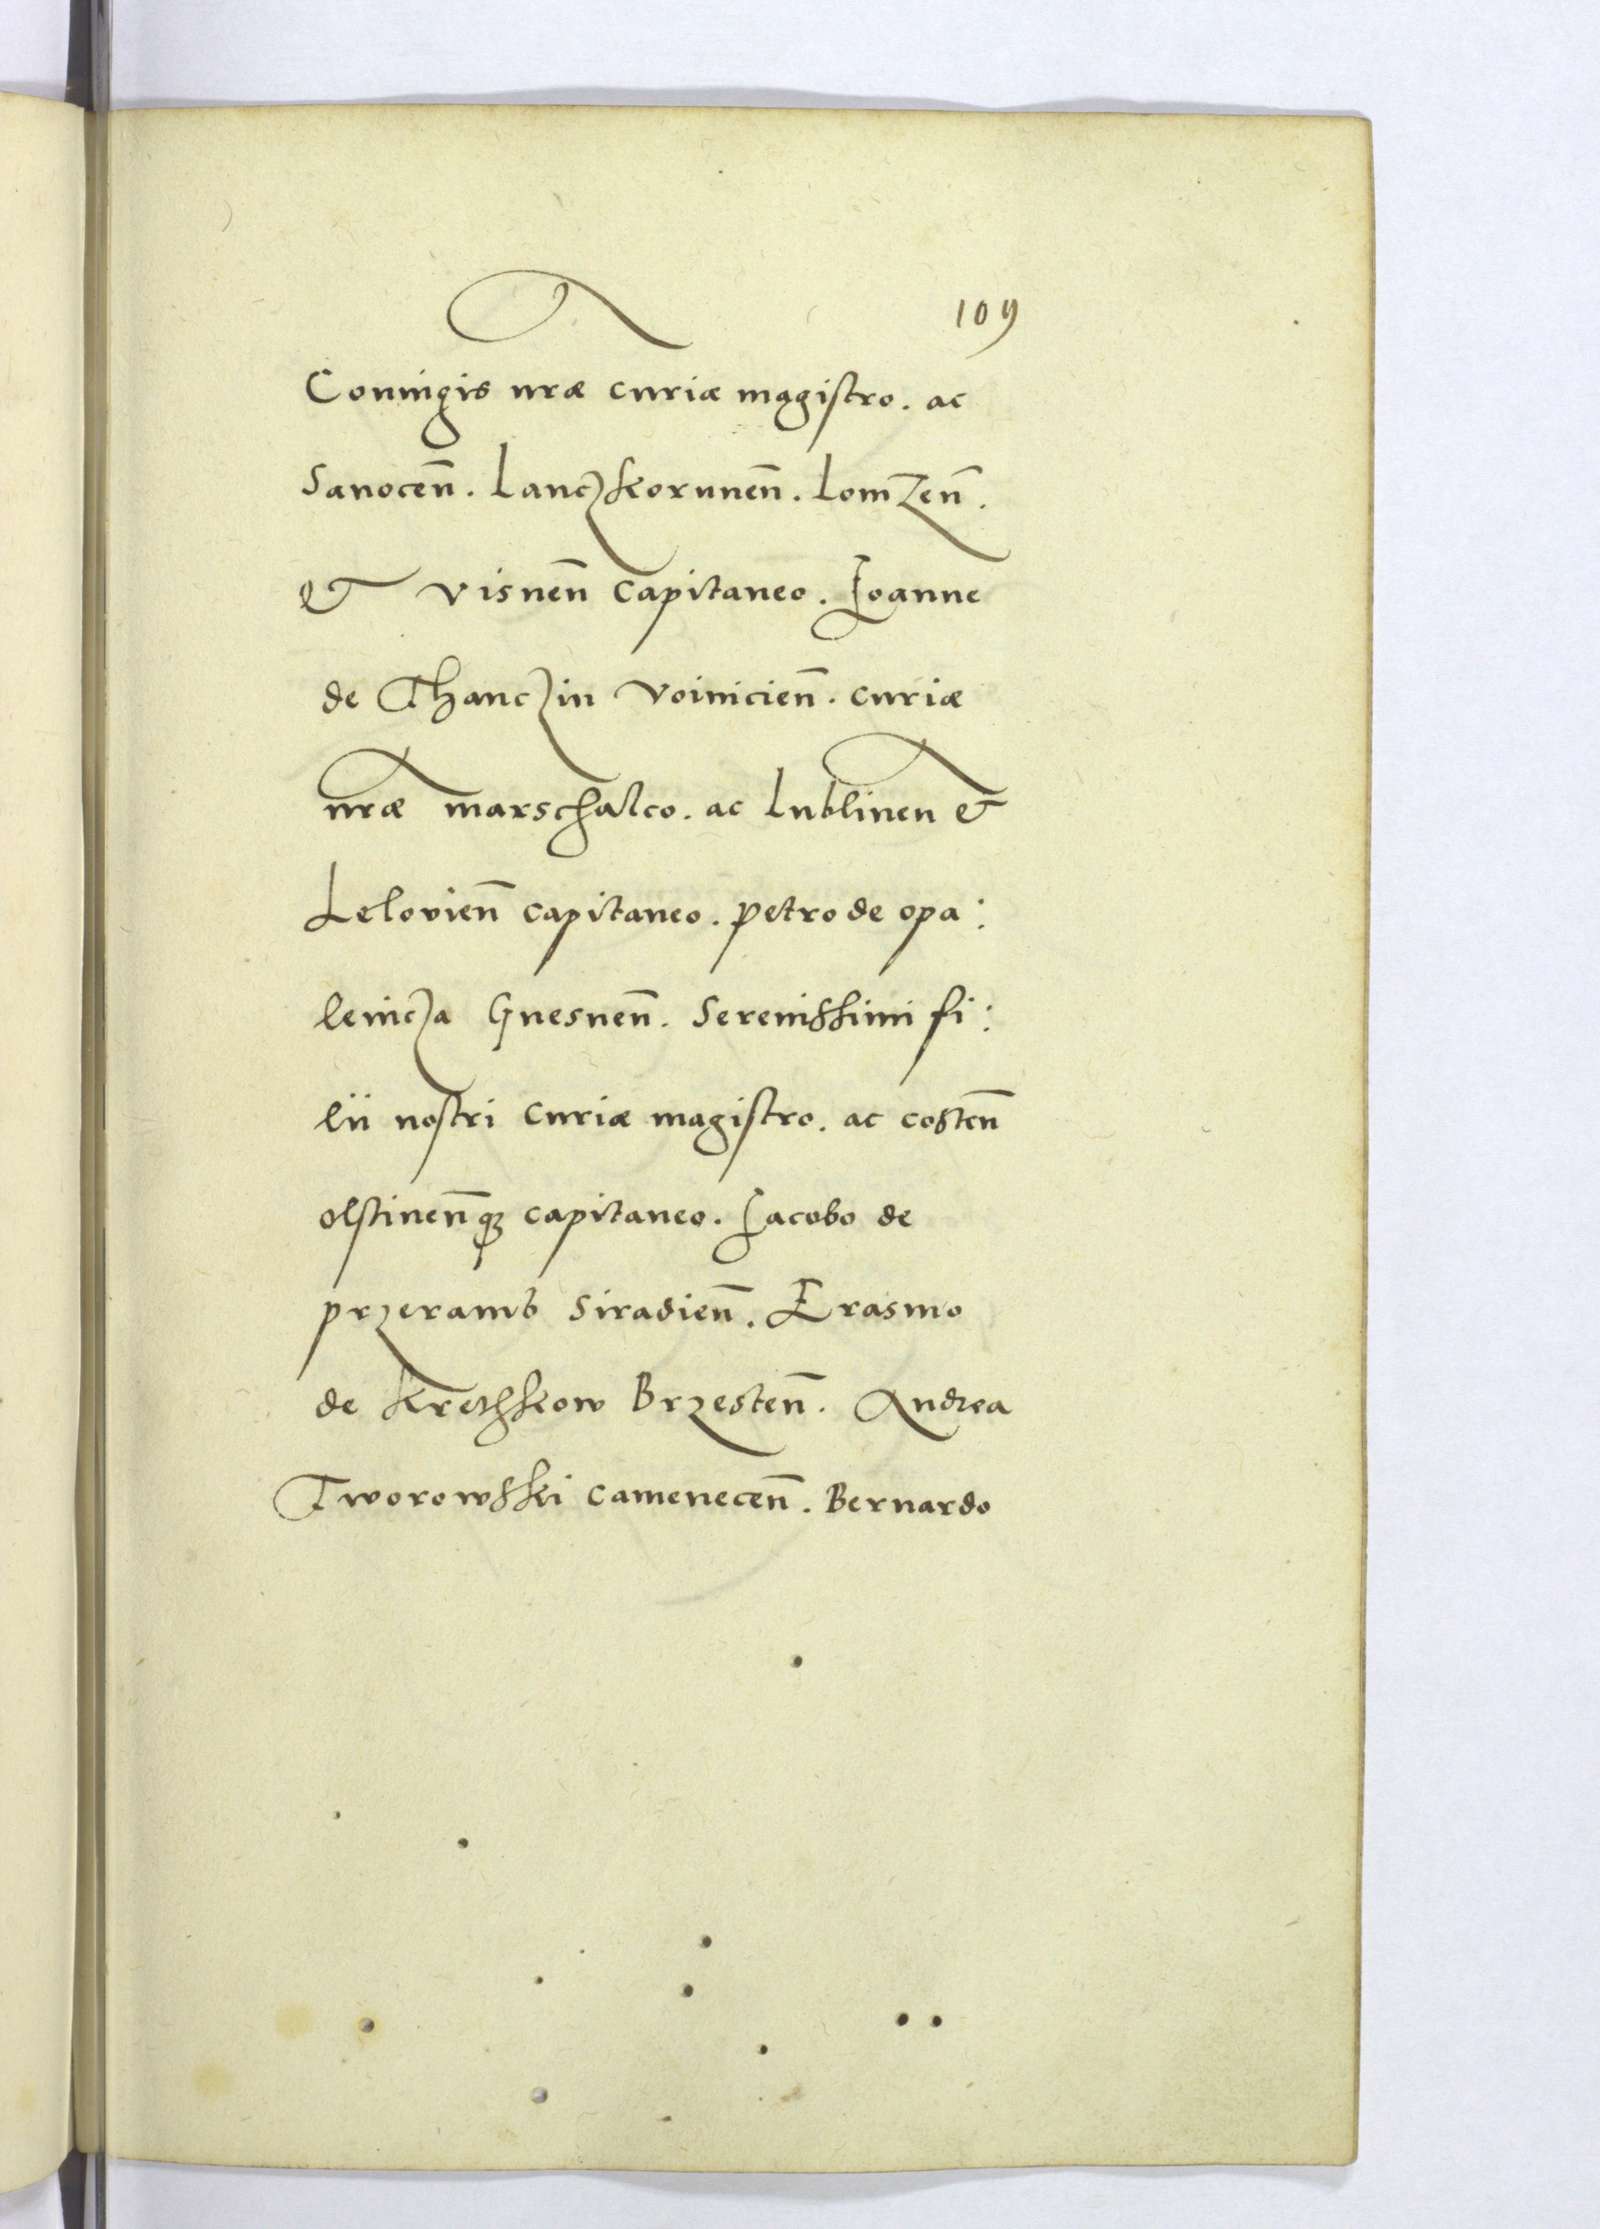 109
Coniugis nræ curiæ magistro. ac
Sanocen̄. Lanczkorunen̄. Lomzen̄.
& Visnen̄ Capitaneo. Ioanne
de Thanczin Voinicien̄. curiæ
nr̄æ marschalco. ac Lublinen &
Lelovien̄ capitaneo. Petro de opa:
lenicza Gnesnen̄. Serenissimi fi:
lii nostri curiæ magistro. ac costen̄
olstinen̄q3 capitaneo. Iacobo de
przeramb Siradien̄. Erasmo
de Krethkow Brzesten̄. Andrea
Tworowski camenecen̄. Bernardo